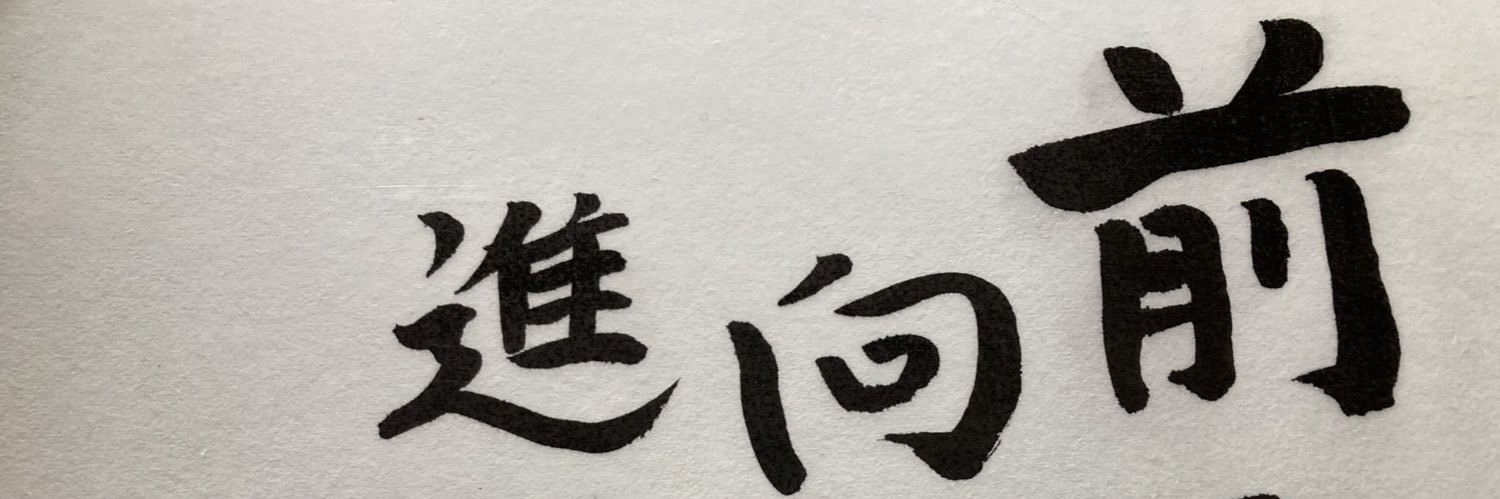 前向進